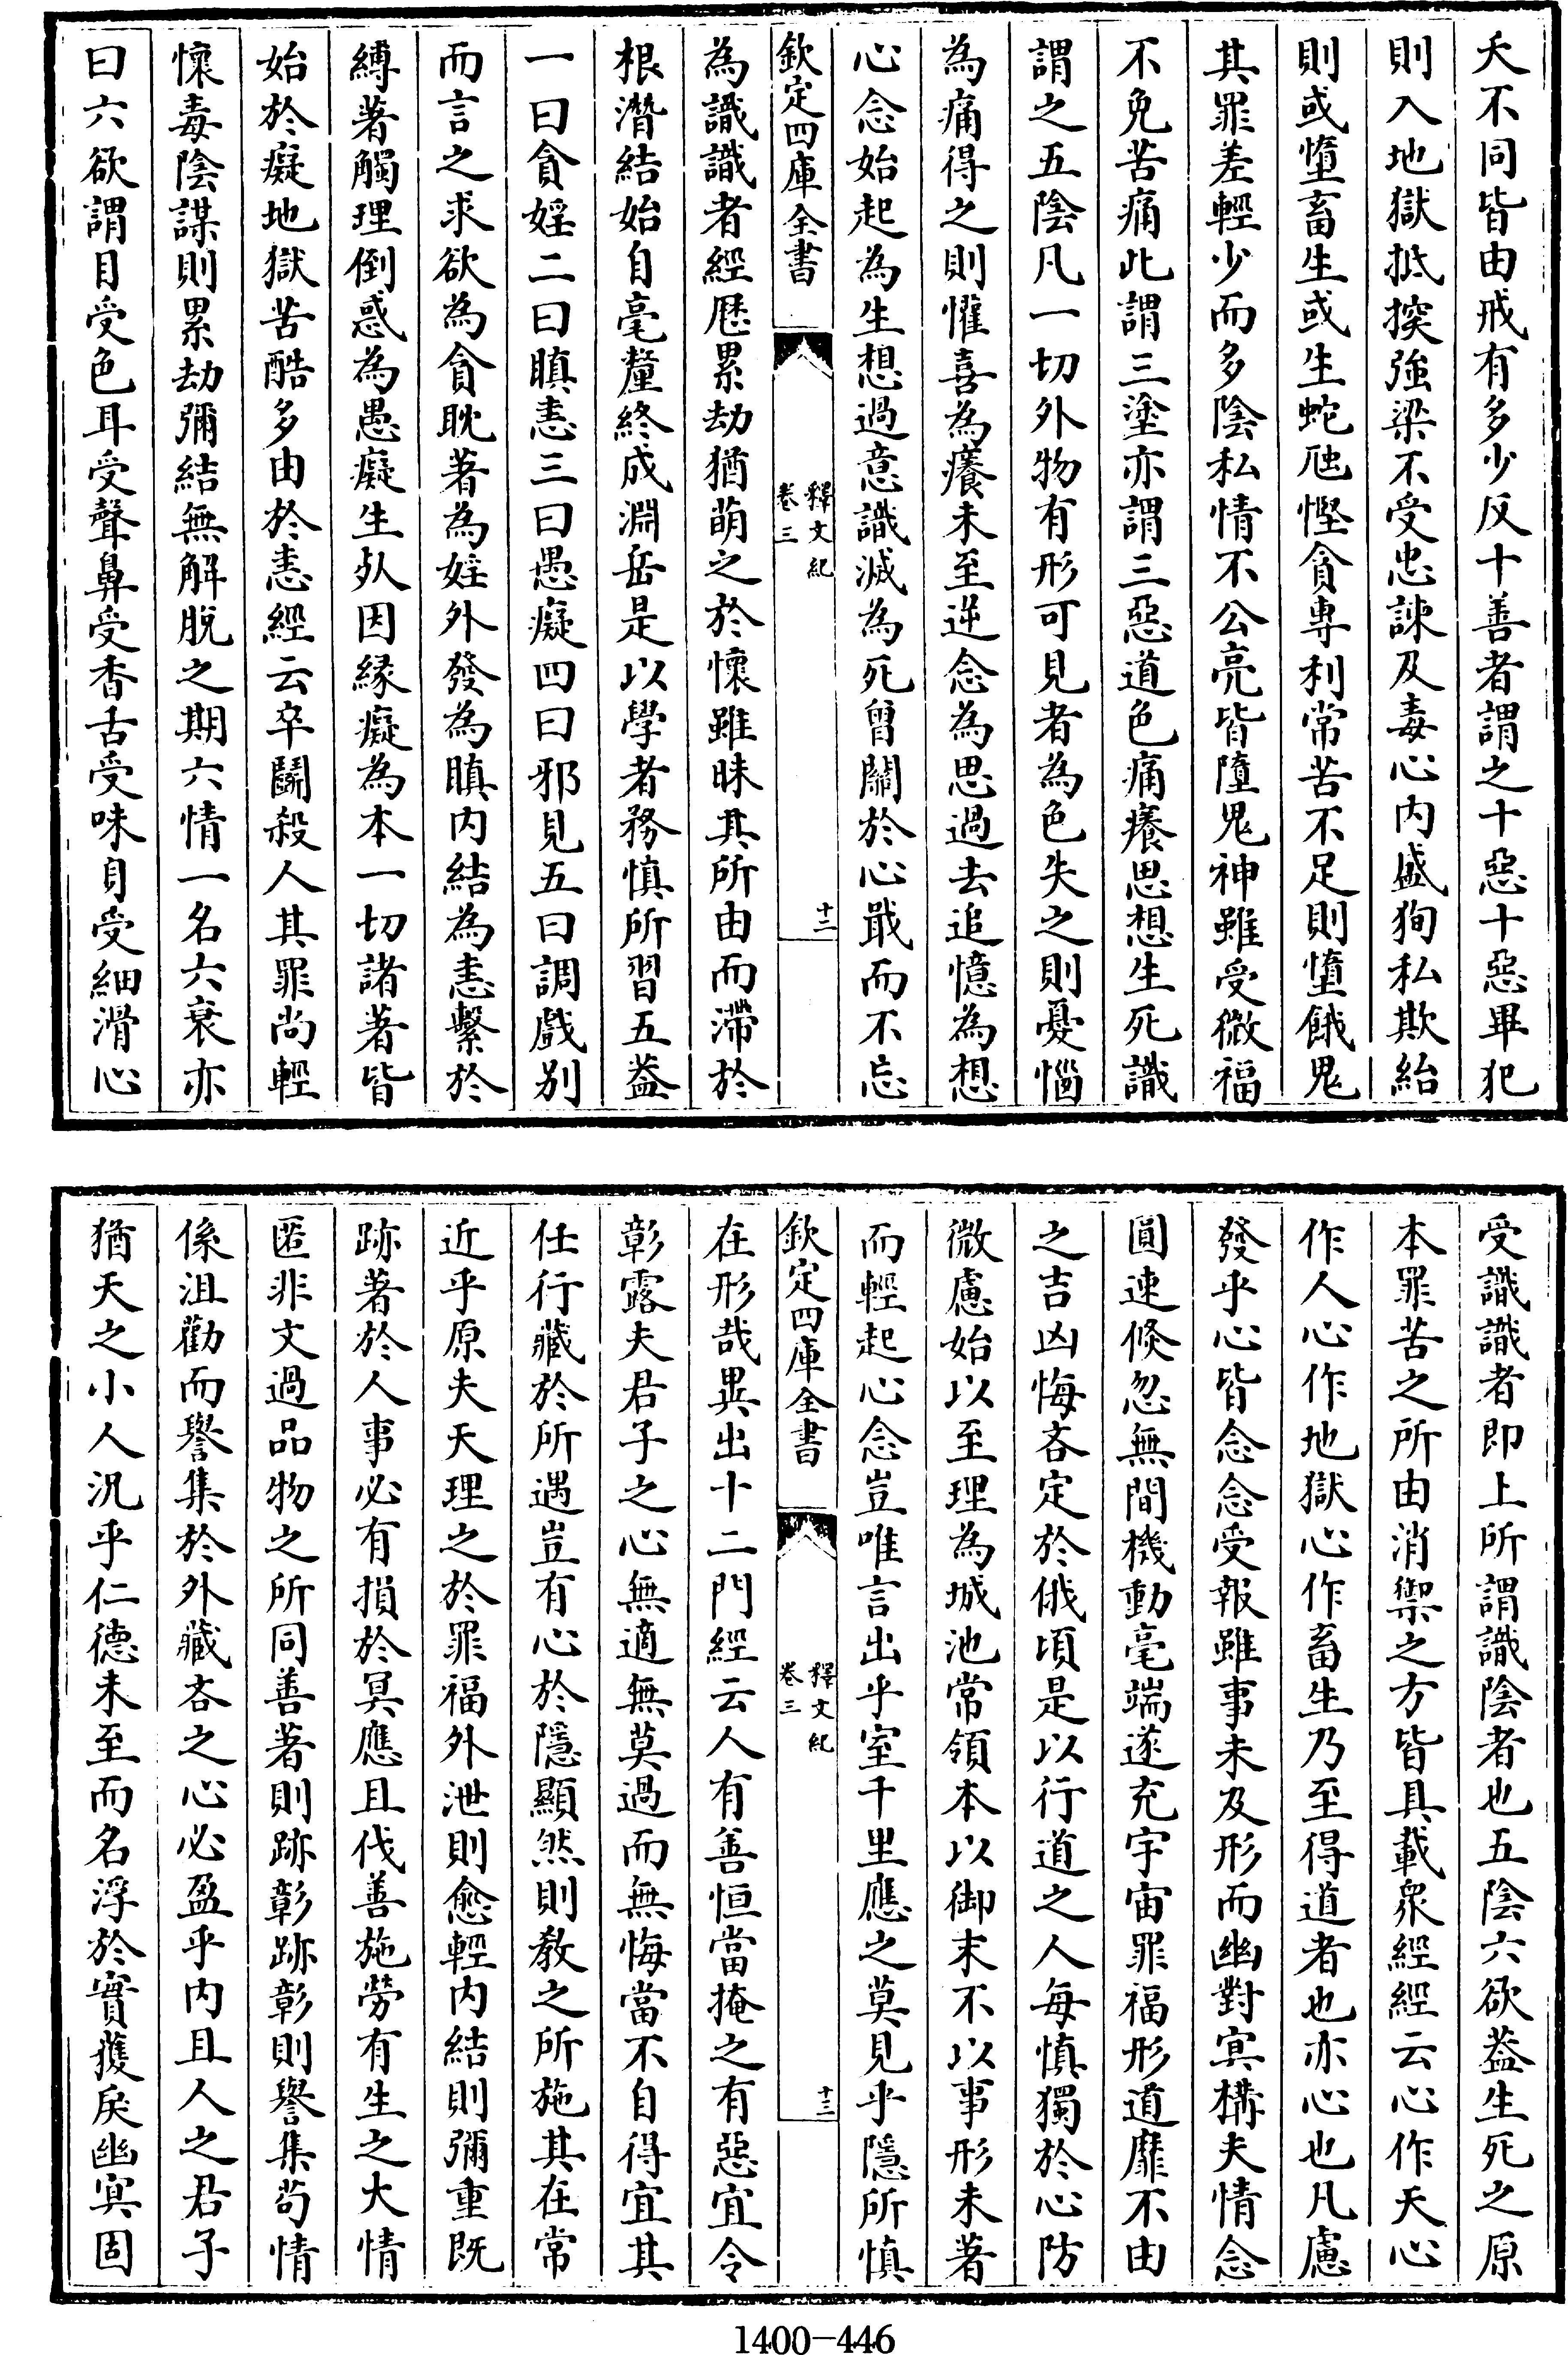 夭不同皆由戒有多少反十善者謂之十惡十惡畢犯
則入地獄抵揬強梁不受忠諫及毒心内盛狥私欺紿
則或墮畜生或生蛇虺慳貪專利常苦不足則墮餓鬼
其罪差輕少而多陰私情不公亮皆墮鬼神雖受微福
不免苦痛此謂三塗亦謂三惡道色痛癢思想生死識
謂之五陰凡一切外物有形可見者為色失之則憂惱
為痛得之則懽喜為癢未至逆念為思過去追憶為想
心念始起為生想過意識滅為死曾關於心戢而不忘
欽定四庫全書
釋文紀
卷三
十二
為識識者經厯累劫猶萌之於懷雖昧其所由而滯於
根潛結始自毫釐終成淵岳是以學者務慎所習五葢
一曰貪婬二曰瞋恚三曰愚癡四曰邪見五曰調戲别
而言之求欲為貪耽著為婬外發為瞋内結為恚繫於
縛著觸理倒惑為愚癡生死因緣癡為本一切諸著皆
始於癡地獄苦酷多由於恚經云卒鬭殺人其罪尚輕
懷毒陰謀則累劫彌結無解脱之期六情一名六衰亦
曰六欲謂目受色耳受聲鼻受香舌受味身受細滑心
受識識者即上所謂識陰者也五陰六欲葢生死之原
本罪苦之所由消禦之方皆具載衆經經云心作天心
作人心作地獄心作畜生乃至得道者也亦心也凡慮
發乎心皆念念受報雖事未及形而幽對冥構夫情念
圓速倏忽無間機動毫端遂充宇宙罪福形道靡不由
之吉凶悔吝定於俄頃是以行道之人每慎獨於心防
微慮始以至理為城池常領本以御末不以事形未著
而輕起心念豈唯言出乎室千里應之莫見乎隱所慎
欽定四庫全書
釋文紀
卷三
十三
在形哉異出十二門經云人有善恒當掩之有惡宜令
彰露夫君子之心無適無莫過而無悔當不自得宜其
任行藏於所遇豈有心於隱顯然則教之所施其在常
近乎原夫天理之於罪福外泄則愈輕内結則彌重既
跡著於人事必有損於冥應且伐善施勞有生之大情
匿非文過品物之所同善著則跡彰跡彰則譽集苟情
係沮勸而譽集於外藏吝之心必盈乎内且人之君子
猶天之小人況乎仁德未至而名浮於實獲戾幽冥固
1400-446